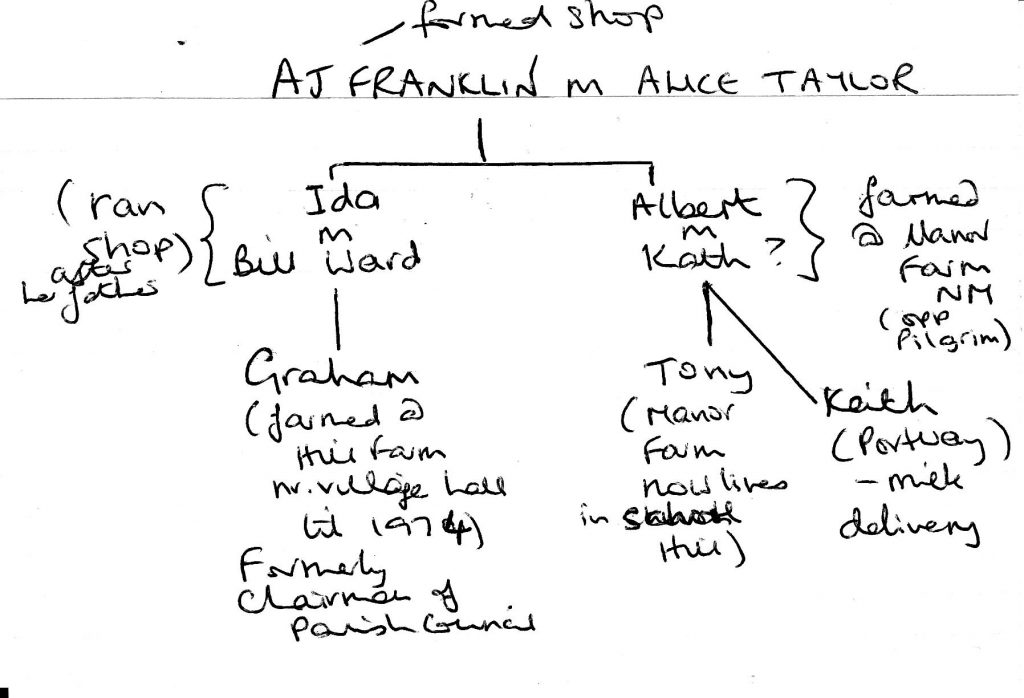 formed shop
AJ FRANKLIN m ALICE TAYLOR
(ran
shop)
after
her father
Ida
m
Bill Ward
Albert
m
Kath ?
farmed
@ Manor
Farm
NM
(opp
Pilgrim)
Graham
(farmed @
Hill Farm
nr. village hall
til 1974)
Formerly
Chairman of
Parish Council
Tony
(Manor
Farm
now lives
in School
Hill)
Keith
(Portway)
- milk
delivery